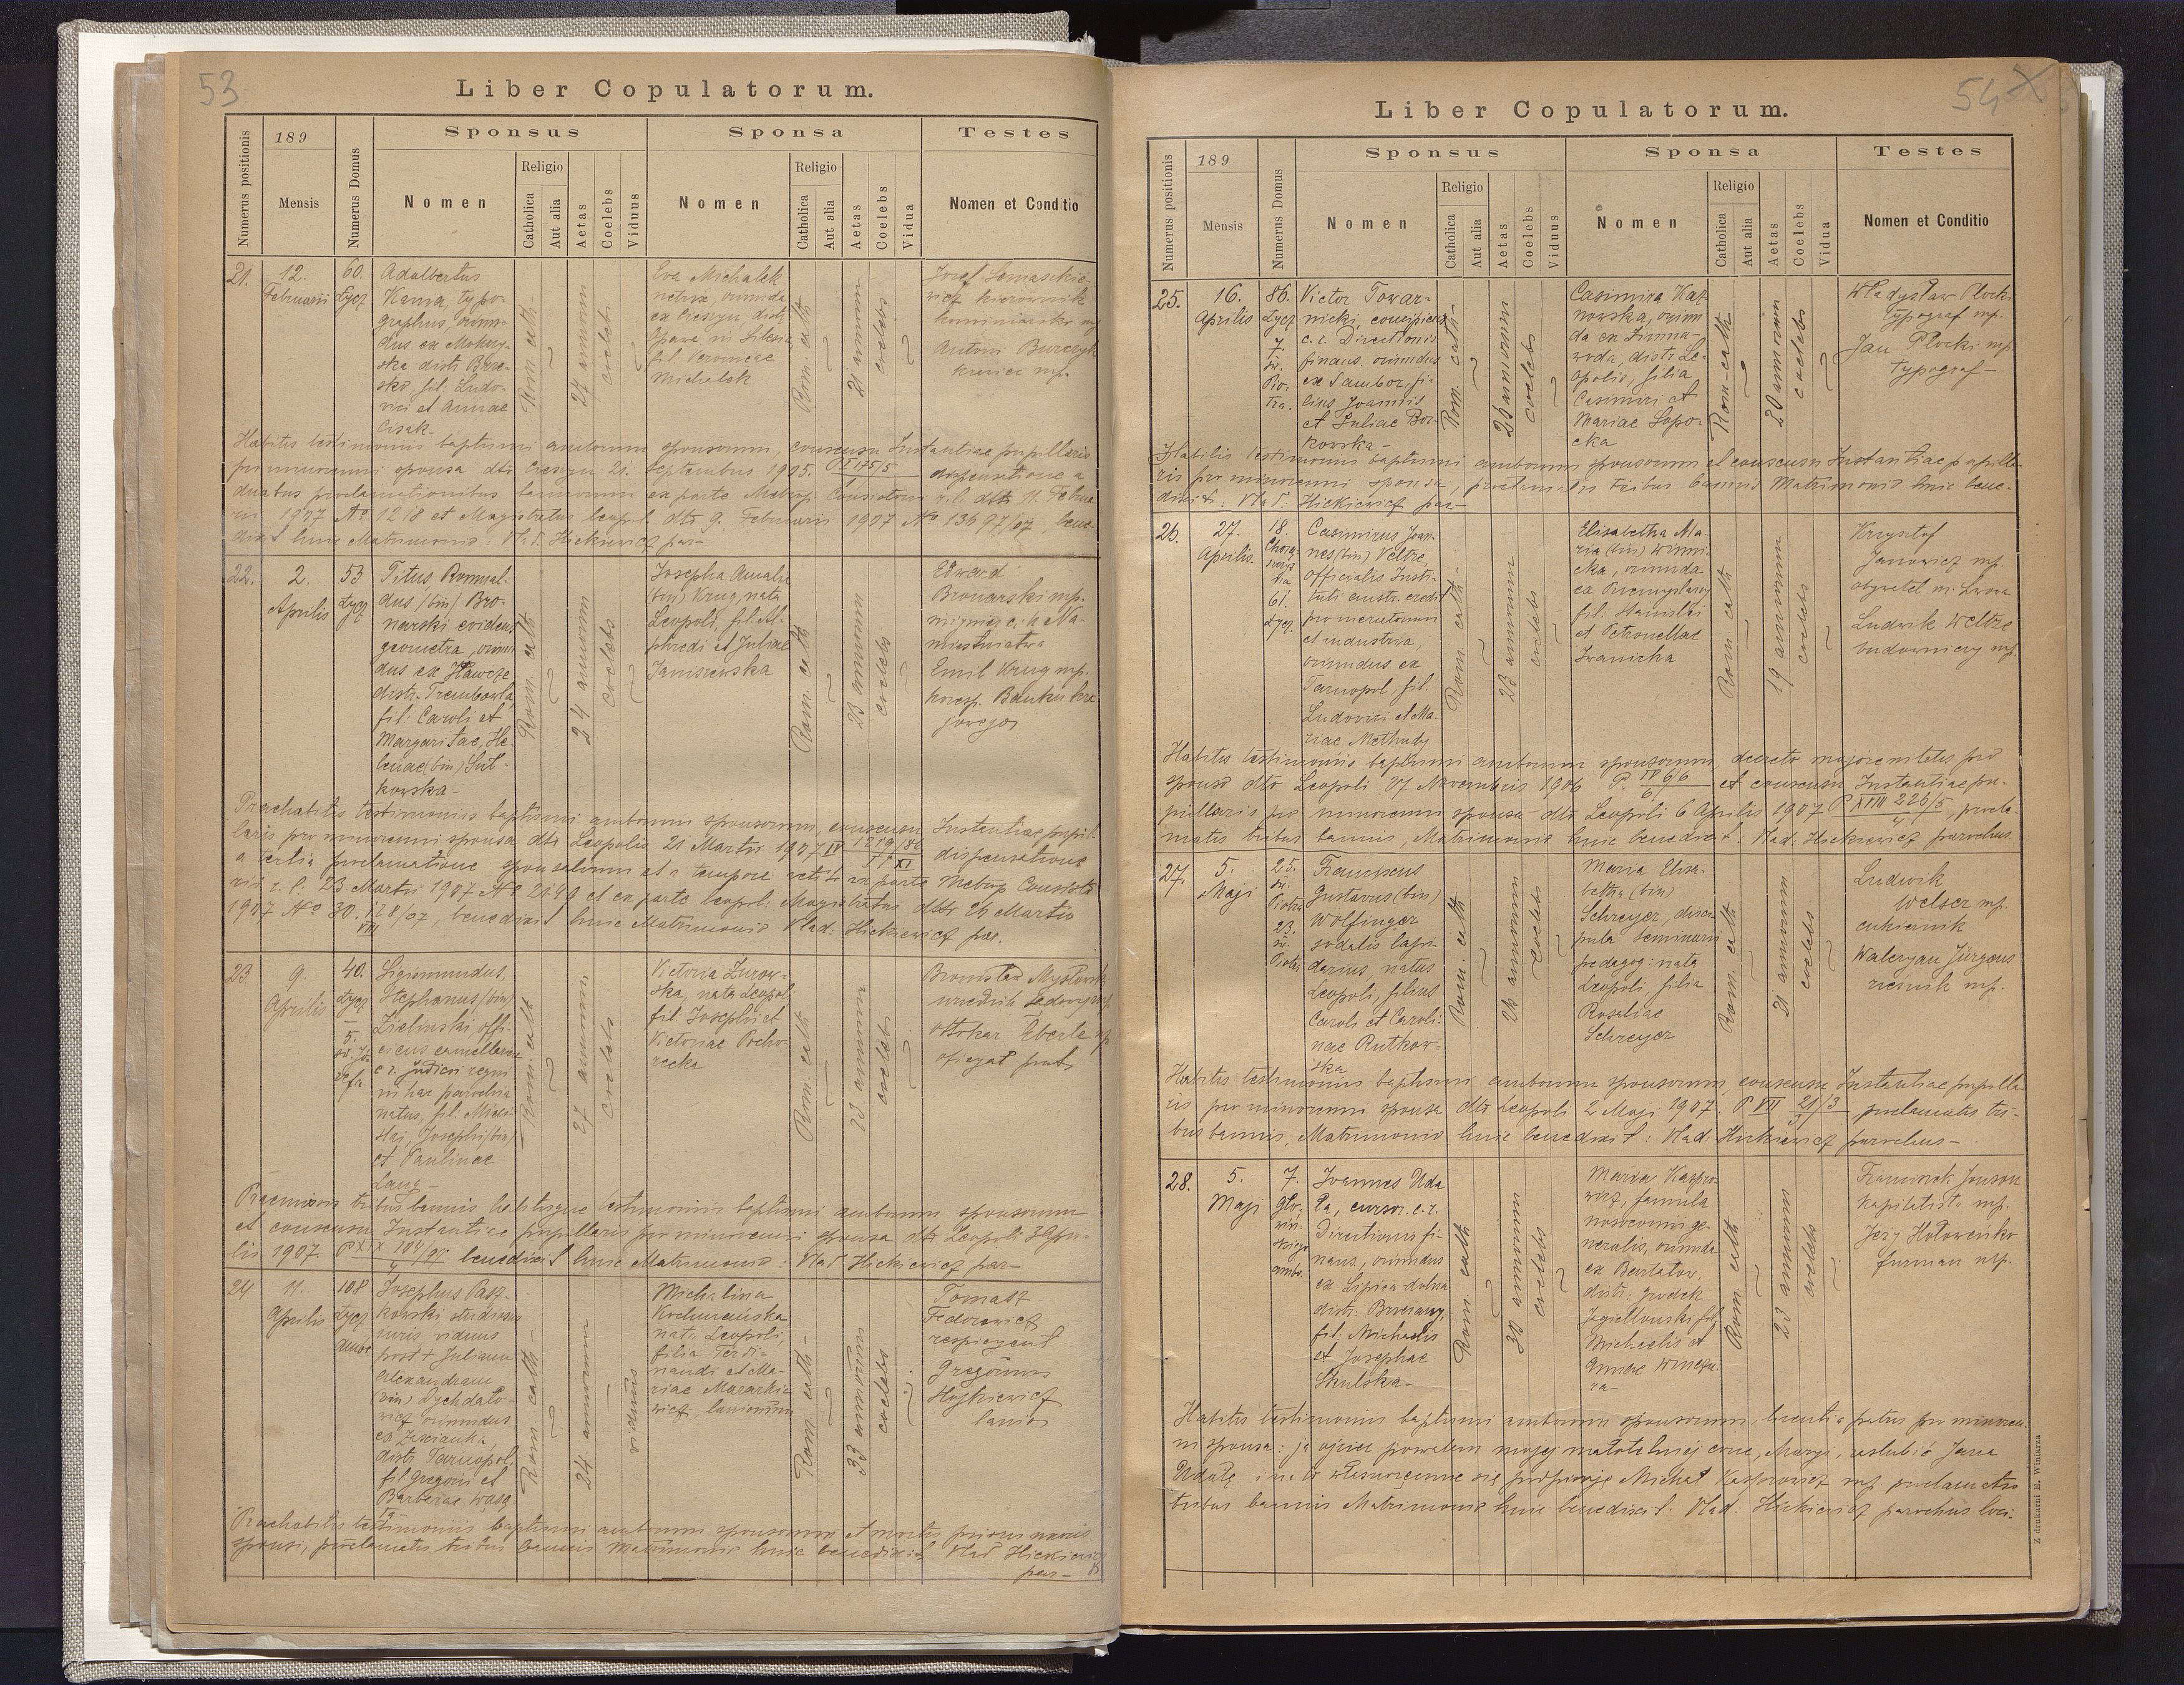 53
Liber Copulatorum.
Numerus positionis
189
Mensis
Numerus Domus
Sponsus
Nomen
Religio
Catholica
Aut alia
Aetas
Coelebs
Viduus
Sponsa
Nomen
Religio
Catholica
Aut alia
Aetas
Coelebs
Vidua
Testes
Nomen et Conditio
21.
12.
Februarii
60.
Łycz
Adalbertus
typo-
graphus, oriun-
dus ex
ska distr. Brze-
sko, fil. Ludo-
vici et Annae
Cisak
Rom. cath
27 annorum
coelebs
Eva Michalek
oriunda
ex Cieszyn, distr.
in Silesia
fil. Veronicae
Michalek
Rom. cath
21 annorum
coelebs
Józef
kierownik
Antoni
krawiec mp.
Habitis testimoniis baptismi amborum sponsorum, consensu Instantiae pupillaris
pro minorenni sponsa dto Cieszyn 21. Septembris 1905. dispensatione a
duabus proclamationibus bannorum ex parte Metrop. Consistorii r. l. dto 11. Februa
rii 1907 No 1218 et Magistratus Leopol. dto 9. Februarii 1907 No 13697/07 bene-
dixit huic Matrimonio: Vlad. Hickiewicz par—
22.
2.
Aprilis
53
Łycz
Titus Romual-
dus (bin) Bro-
narski evidens
geometra, oriun
dus ex Iławcze
distr. Trembowla,
fil. Caroli et
Margaritae, He-
lenae (bin) Sut-
kowska—
Rom. cath
24 annorum
coelebs
Josepha Amalia
(bin) Krug, nata
Leopoli, fil. Al-
phredi et Juliae
Janiszewska
Rom. cath
23 annorum
coelebs
Edward
Bronarski mp.
c. k. Na-
miestnictwa
Emil Krug mp.
Banku kra
jowego
Praehabitis testimoniis baptismi amborum sponsorum, consensu Instantiae pupil-
laris pro minorenni sponsa dto Leopolis 21 Martii 1907 dispensatione
a tertia proclamatione sponsalium et a tempore vetito ex parte Metrop Consisto
rii r. l. 23 Martii 1907 No 2149 et ex parte Leopol. Magistratus dto 26 Martii
1907 No 30.128/07, benedixit huic Matrimonio Vlad: Hickiewicz par.
23
9.
Aprilis
40.
Łycz
5.
św. Jó-
zefa
Sigismundus
Stephanus (bin)
Zielinski, offi-
cialis cancellariae
c. r. judicii regni
in hac parochia
natus, fil.
Josephi (bin)
et Paulinae
Lang—
Rom. cath
27 annorum
coelebs
Victoria Żurow-
ska, nata Leopol.
fil. Josephi et
Victoriae Pocho-
recka
Rom. cath
23 annorum
coelebs
Bronisław
urzędnik sądowy mp.
Ottokar Eberle mp
Praemissis tribus bannis habitisque testimoniis baptismi amborum sponsorum
et consensu Instantiae pupillaris pro minorenni sponsa dto Leopoli 3 Apri-
lis 1907 benedixit huic Matrimonio: Vlad Hickiewicz par—
24
11.
Aprilis
108
Łycz
ambo
Josephus Pasz-
kowski studiosus
juris, viduus
post + Juliana
Alexandram
(bin) Bychdato-
wicz oriundus
ex
distr. Tarnopol,
fil. Gregorii et
Barbarae
Rom. cath
24 annorum
viduus
Michalina
nata Leopoli,
filia Ferdi-
nandi et Ma-
riae
wicz,
Rom. cath
33 annorum
coelebs
Tomasz
Fedorowicz
respicyent
Gregorius
lanio
Praehabitis testimoniis baptismi amborum sponsorum et mortis prioris uxoris
sponsi, proclamatis tribus bannis Matrimonio huic benedixit Vlad Hickiewicz
par—
54
Liber Copulatorum.
Numerus positionis
189
Mensis
Numerus Domus
Sponsus
Nomen
Religio
Catholica
Aut alia
Aetas
Coelebs
Viduus
Sponsa
Nomen
Religio
Catholica
Aut alia
Aetas
Coelebs
Vidua
Testes
Nomen et Conditio
25.
16.
Aprilis
86.
Łycz
7
św.
Pio-
tra.
Victor Towar-
nicki, concipiens
c. r. Directionis
finans. oriundus
ex Sambor, fi-
lius Joannis
et Juliae Bor-
kowska—
Rom. cath
coelebs
Casimira Kaz
nowska, oriun
da ex Zimna-
woda, distr. Le-
opolis, filia
Casimiri et
Mariae Sopo-
cka
Rom-cath
20 annorum
coelebs
Władysław Plocki
typograf mp.
Jan Plocki mp.
typograf—
Habitis testimoniis baptismi amborum sponsorum et consensu Instantiae pupilla-
ris pro minorenni sponsa, proclamatis tribus bannis Matrimonio huic bene-
dixit: Vlad. Hickiewicz par—
26.
27.
Aprilis.
18.
61.
Łycz.
Casimirus Joan-
nes (bin) Veltze,
officialis Insti-
tuti austr. credit
pro mercatorum
et industria,
oriundus ex
Tarnopol, fil.
Ludovici et Ma-
riae Methudy
Rom. cath—
23 annorum
coelebs
Elisabetha Ma-
ria (bin) Winni-
cka, oriunda
ex Przemyślany
fil. Stanislai
et Petronellae
Iwanicka
Rom cath
19 annorum
coelebs
Krzysztof
Janowicz mp.
obywatel m. Lwowa
Ludwik Weltze
budowniczy mp.
Habitis testimoniis baptismi amborum sponsorum, decreto majorennitatis pro
sponso dto Leopoli 27 Novembris 1906 et consensu Instantiae pu-
pillaris pro minorenni sponsa dto Leopoli 6 Aprilis 1907 P XVIII 226/5, procla-
matis tribus bannis, Matrimonio huic benedixit. Vlad. Hickiewicz parochus
27.
5.
Maji
25.
św.
Piotra
23.
św.
Piotra
Franciscus
Gustavus (bin)
Wolfinger
sodalis lapi-
darius, natus
Leopoli, filius
Caroli et Caroli-
nae Rutkow-
ska
Rom. cath
24 annorum
coelebs
Maria Elisa-
betha (bin)
Schreyer, disci-
pula seminarii
pedagog: nata
Leopoli, filia
Rosaliae
Schreyer
Rom. cath
21 annorum
coelebs
Ludwik
Welser mp.
cukiernik
Waleryan Jürgens
rzeźnik mp.
Habitis testimoniis baptismi amborum sponsorum, consensu Instantiae pupilla
ris pro minorenni sponsa dto Leopoli 2 Maji 1907. P VII 21/3 proclamatis tri-
bus bannis, Matrimonio huic benedixit: Vlad. Hickiewicz parochus—
28.
5.
Maji
7.
ambo.
Joannes Uda
la, cursor. c. r.
Directionis fi-
nans, oriundus
ex Lipica dolna
distr. Brzezany,
fil. Michaelis
et Josephae
Skulska—
Rom. cath
30 annorum
coelebs
Maria Kaspro
wicz, famula
nosocomii ge-
neralis, oriunda
ex Bartatow,
distr: Grodek
Jagiellonski fil
Michaelis et
Annae Winogu-
ra—
Rom. cath
23 annorum
coelebs
Franciszek Jonson
kapitalista mp.
Jerzy Hołowieńko
furman mp.
Habitis testimoniis baptismi amborum sponsorum, licentia patris pro minoren-
ni sponsa: ja ojciec powalam mojej małoletniej córce, Maryi, zaślubić Jana
Udałę i na to własnoręcznie się podpisuję Michał Kasprowicz mp. proclamatis
tribus bannis Matrimonio huic benedixit: Vlad: Hickiewicz parochus loci.
Z drukarni E. Winiarza